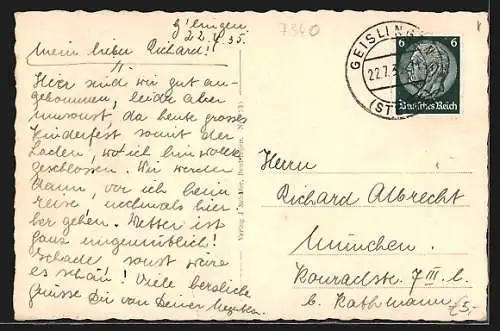 22.7.35.
Mein lieber Richard!
Hier sind wir gut an-
gekommen, leider aber
umsonst, da heute grosses
Kinderfest somit der
Laden, wo ich hin wollte
geschlossen. Wir werden
dann, vor ich heim
reise, nochmals hier
her gehen. Wetter ist
ganz ungemütlich!
Schade, sonst wäre
es schön! Viele herzliche
Grüsse Dir von Deiner
7340
GEISLING
22.7.3
(ST
6 6
Deutsches Reich
Herrn
Richard Albrecht
München.
Konradstr. 7 III. l.
b. Rathmann